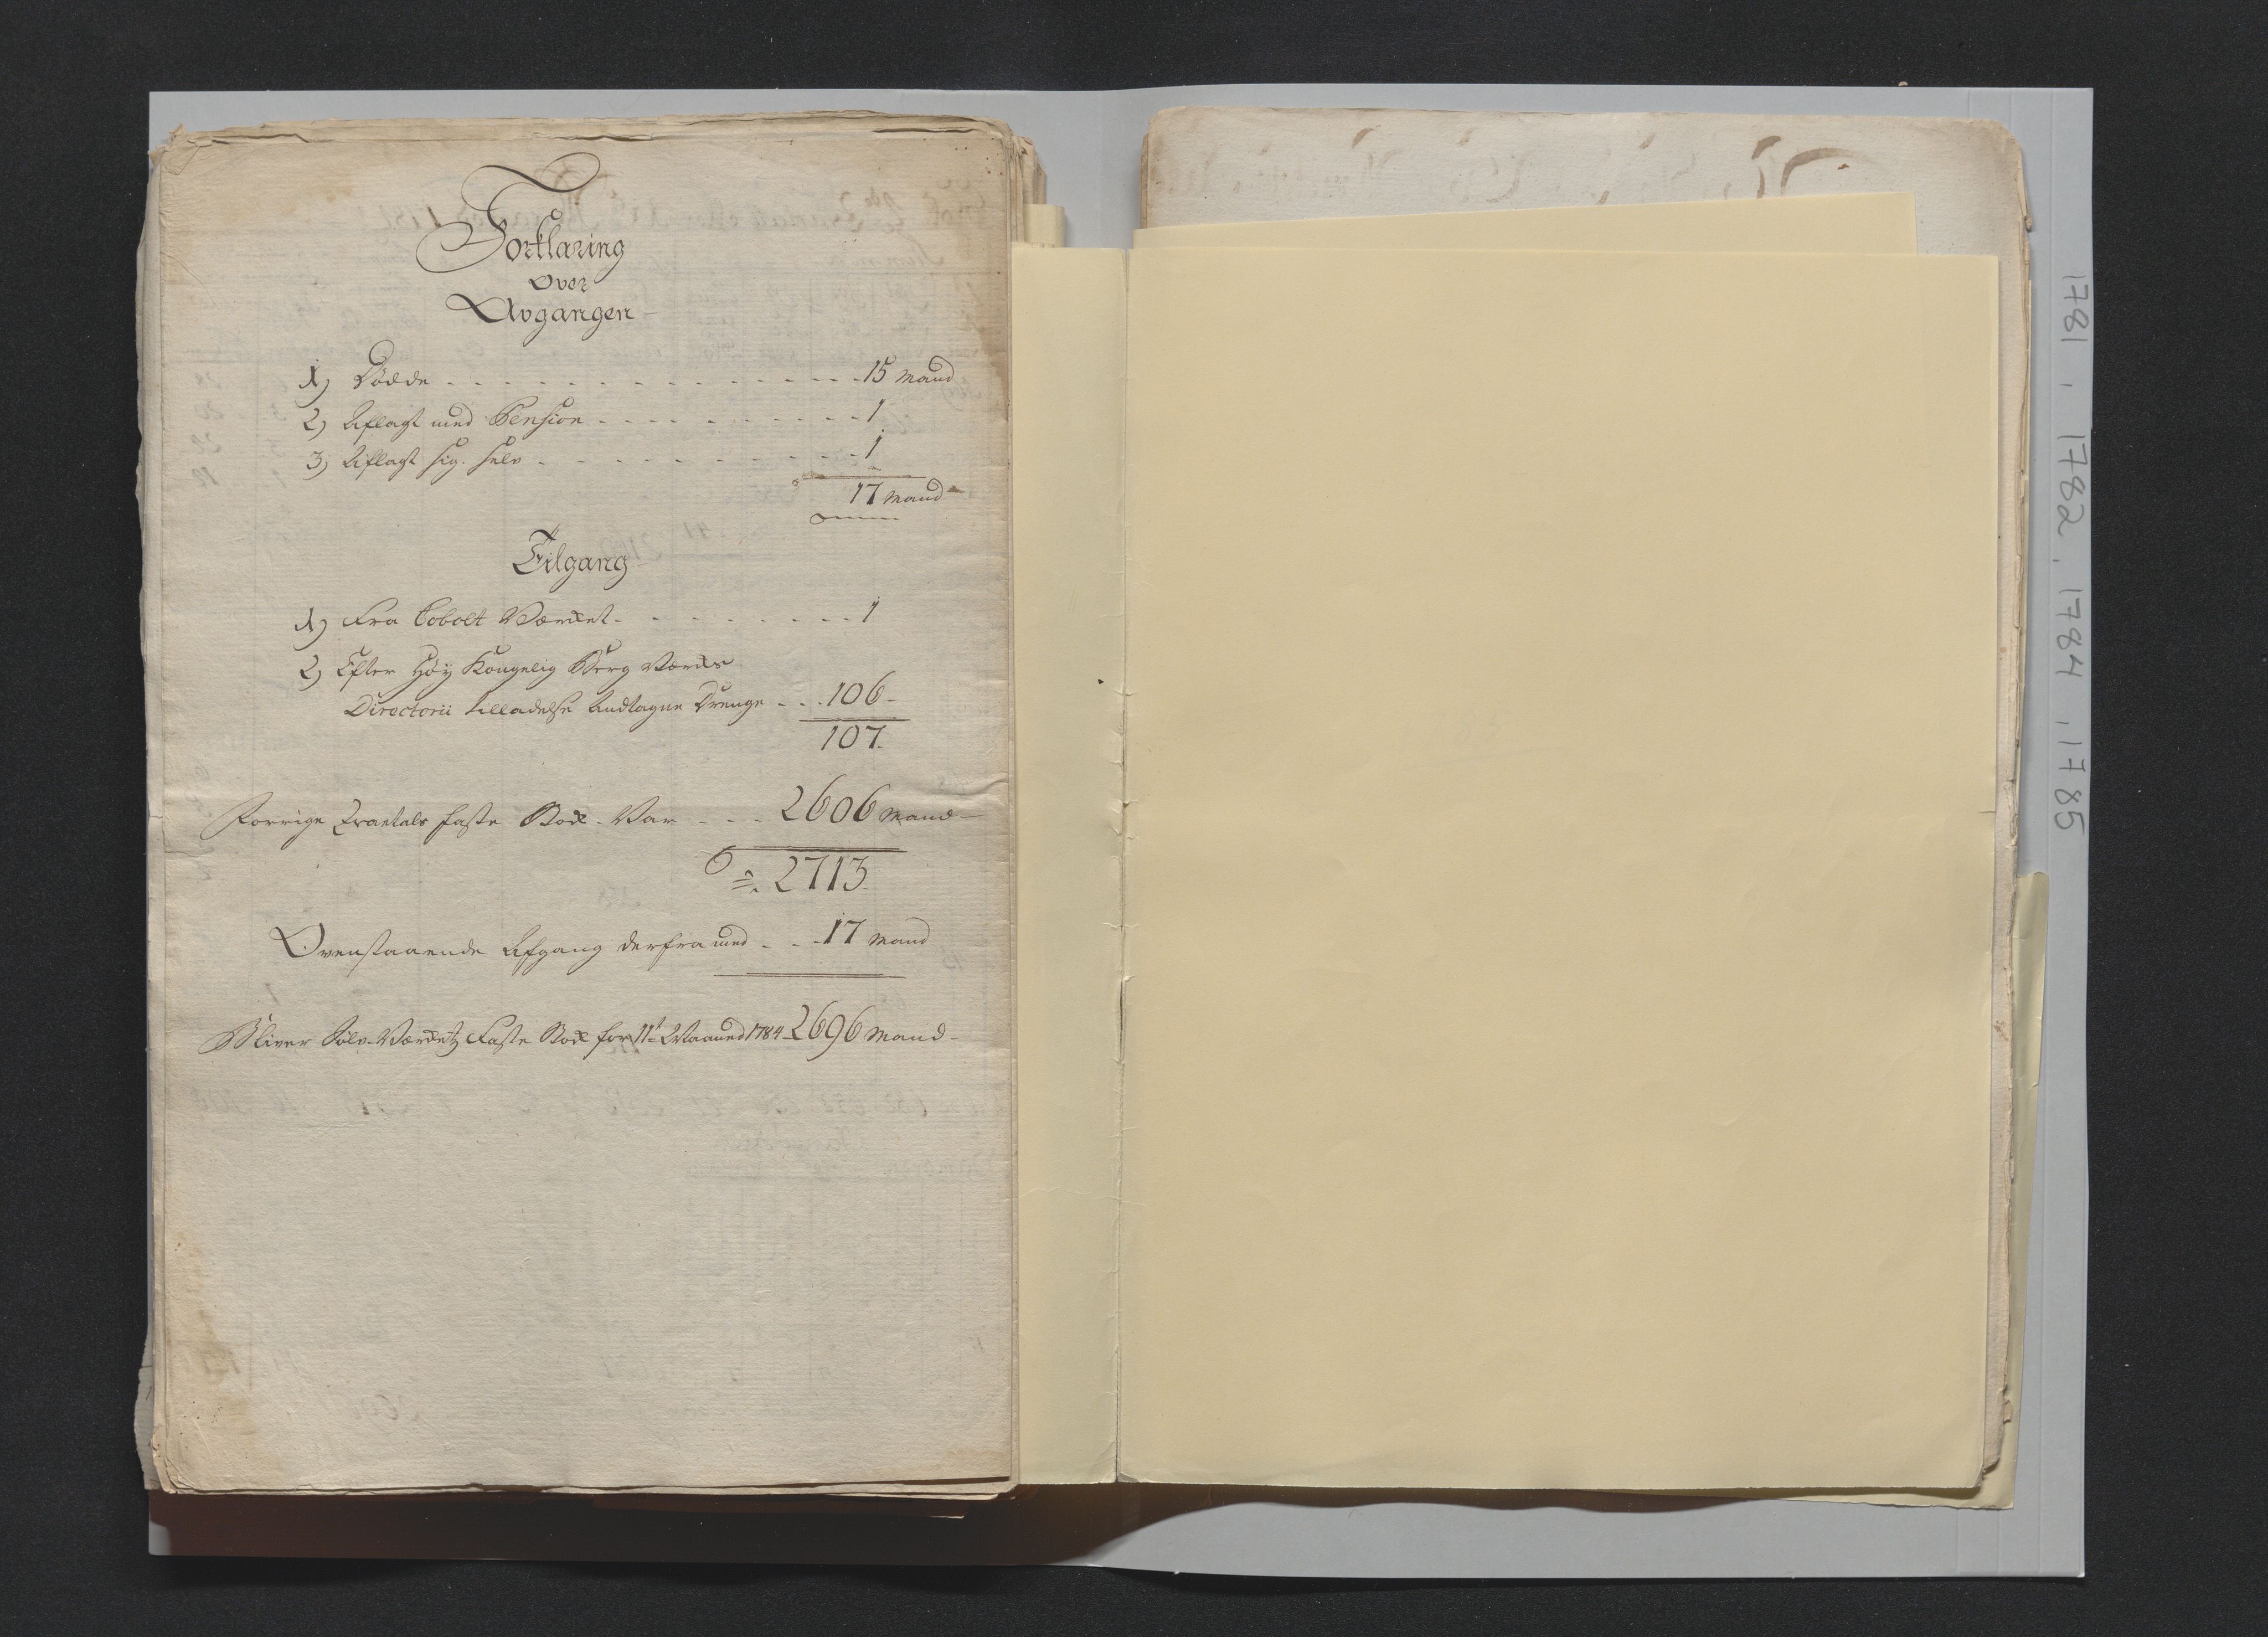 Forklaring
over
Avgangen
1) Dödde - - - - - - - - - - - - - - 15 Mand
2) Aflagt med Pension - - - - - - - - - 1
3) Aflagt sig selv - - - - - - - - - - - 1
17 Mand
Tilgang
1) Fra Cobolt Værket - - - - - - - - - 1
2) Efter Høy Kongelig Berg Værks
Directorii tilladelse Andtagne Drenge - - - 106 -
107.
Forrige Qvartals faste Bok - Var - - - 2606 Mand -
2713
Ovenstaaende Afgang derfra med - - - 17 Mand
Bliver Sølv-Værketz Faste Bok for 11t Maaned 1784 - 2696 Mand -
1781, 1782, 1784, 1785